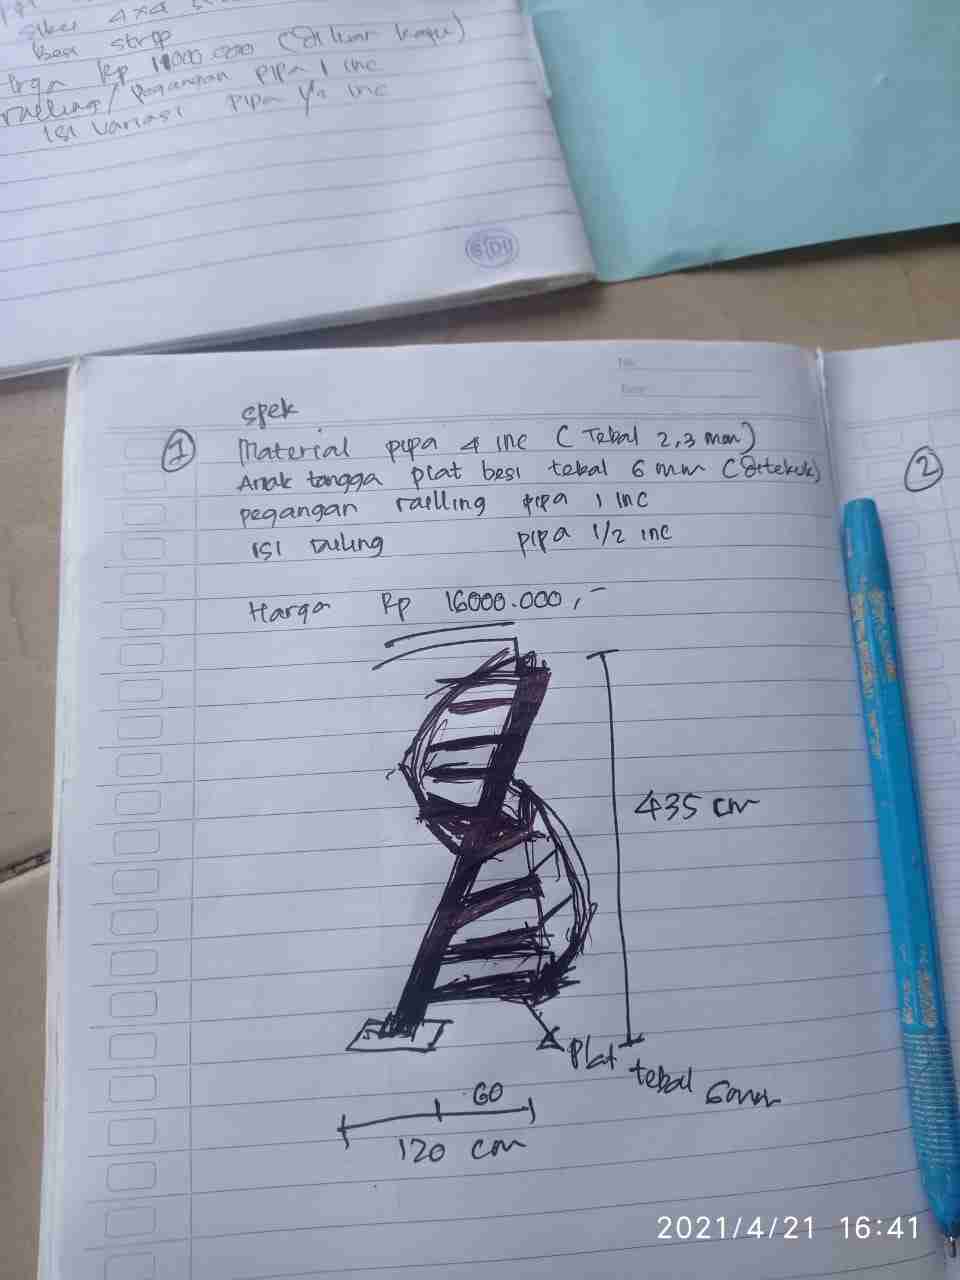 siker 4x4
besi strip
Rp 11000.000 (Diluar kayu)
raelling/pegangan pipa 1 inc
isi variasi pipa 1/2 inc
SIDU
No.
Date
spek
1 Material pipa 4 inc (Tebal 2,3 mm)
Anak tangga plat besi tebal 6 mm (Ditekuk)
pegangan raelling pipa 1 inc
isi railing pipa 1/2 inc
2
Harga Rp 16000.000,-
435 cm
plat tebal 6mm
60
120 cm
2021/4/21 16:41